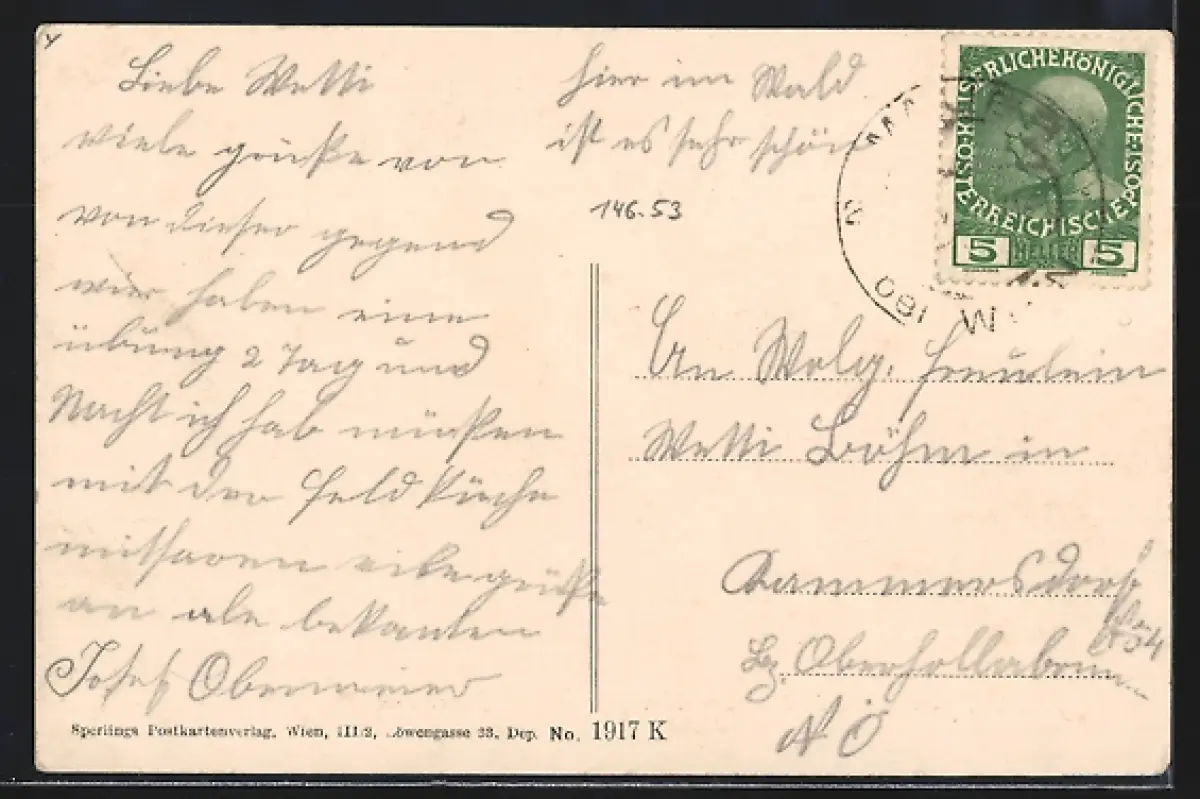 Liebe Wetti
viele grüße von
von dieser gegend
wier haben eine
übung 2 Tag und
Nacht ich hab müßen
mit der feld Küche
mitfaren grüße
an ale bekanten
Josef Obermeier
hier im Wald
ist es sehr schön
146-53
KAISERLICHE KÖNIGLICHE ÖSTERREICHISCHE POST
5 HELLER 5
An Wolg. Freulein
Wetti Böhm in
Kammersdorf
Bz. Oberhollabrunn
N Ö
Sperlings Postkartenverlag, Wien, III/2, Löwengasse 33, Dep. No. 1917 K